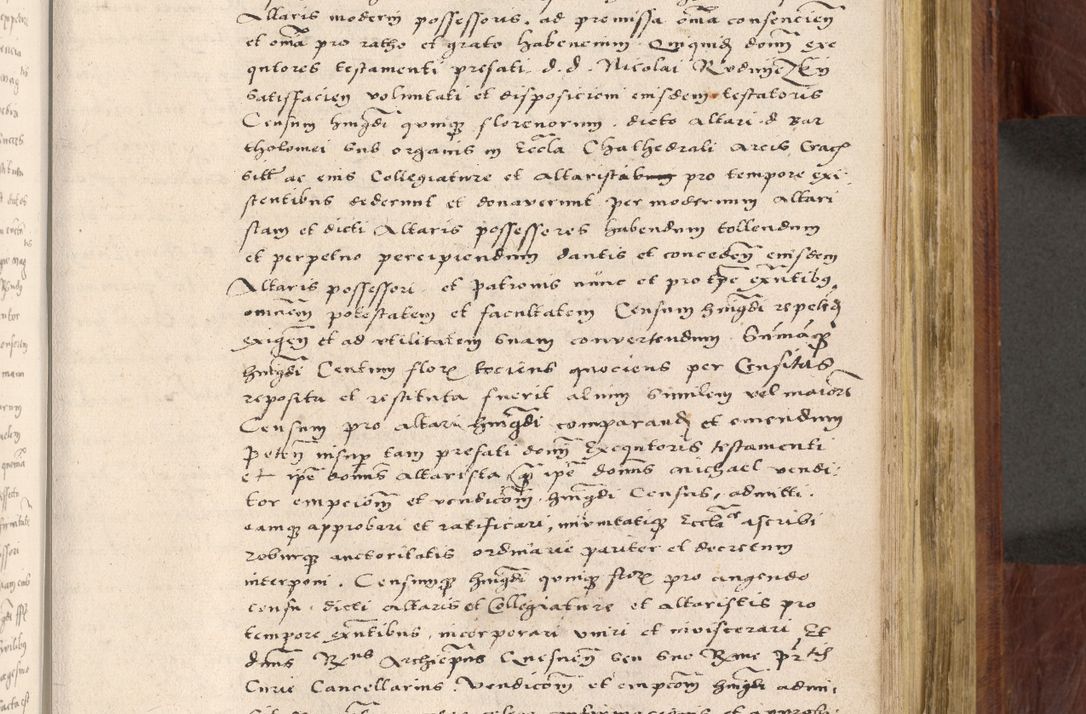 Altaris moderni possessoris, ad premissa om̄a consencien̄
et om̄a pro ratho et grato habencium. Quiquid donn̄ exe
qutores testamenti prefati. d. d. Nicolai
satisfacien voluntati et disposicioni eiusdem testatoris
Censum hmōi quinqȝ florenorum. dicto altari. d. Bar
tholomei sub organis in eccl̄a Chathedrali Arcis Crac̄
sitt̄ ac eius Collegiature et altaristis pro tempore exi
stentibus dederunt et donaverunt per modernum altari
stam et dicti Altaris possessores habendum tollendum
et perpetuo percipiendum dantes et conceden̄ eiusdem
Altaris possessori. et patronis nunc et pro tp̄e exn̄tibus
omnem potestatem et facultatem Censum hmōi repeten̄
exigen̄ et ad utilitatem suam convertendum. Sum̄amqȝ
hmōi Centum flor̄ tociens quociens per Censitas
reposita et restituta fuerit alium similem vel maiorē
Censum pro altari hmōi comparand̄ et emendum
Peten̄ insup̄ tam prefati donn̄ Exequtores testamenti
et ip̄e donn̄s altarista qȝ ip̄e donn̄s Michael vendi
tor empcion̄ et vendicōn̄ hmōi Census, admitti.
eamqȝ approbari et ratificari, immunitatiqȝ Eccl̄ac̄e ascribi
roburqȝ auctoritatis ordinarie pariter et decretum
interponi. Censumqȝ hmōi quinqȝ flor̄ pro augendo
censu. dicti altaris et Collegiature et altaristis pro
tempore exn̄tibus, incorporari uniri et inviscerari Et
dn̄us Rmus Archiepūs Gnesnen̄ seu sue Rme
Curie Cancellarius. Vendicōn̄ et empcōn̄ hmōi admi